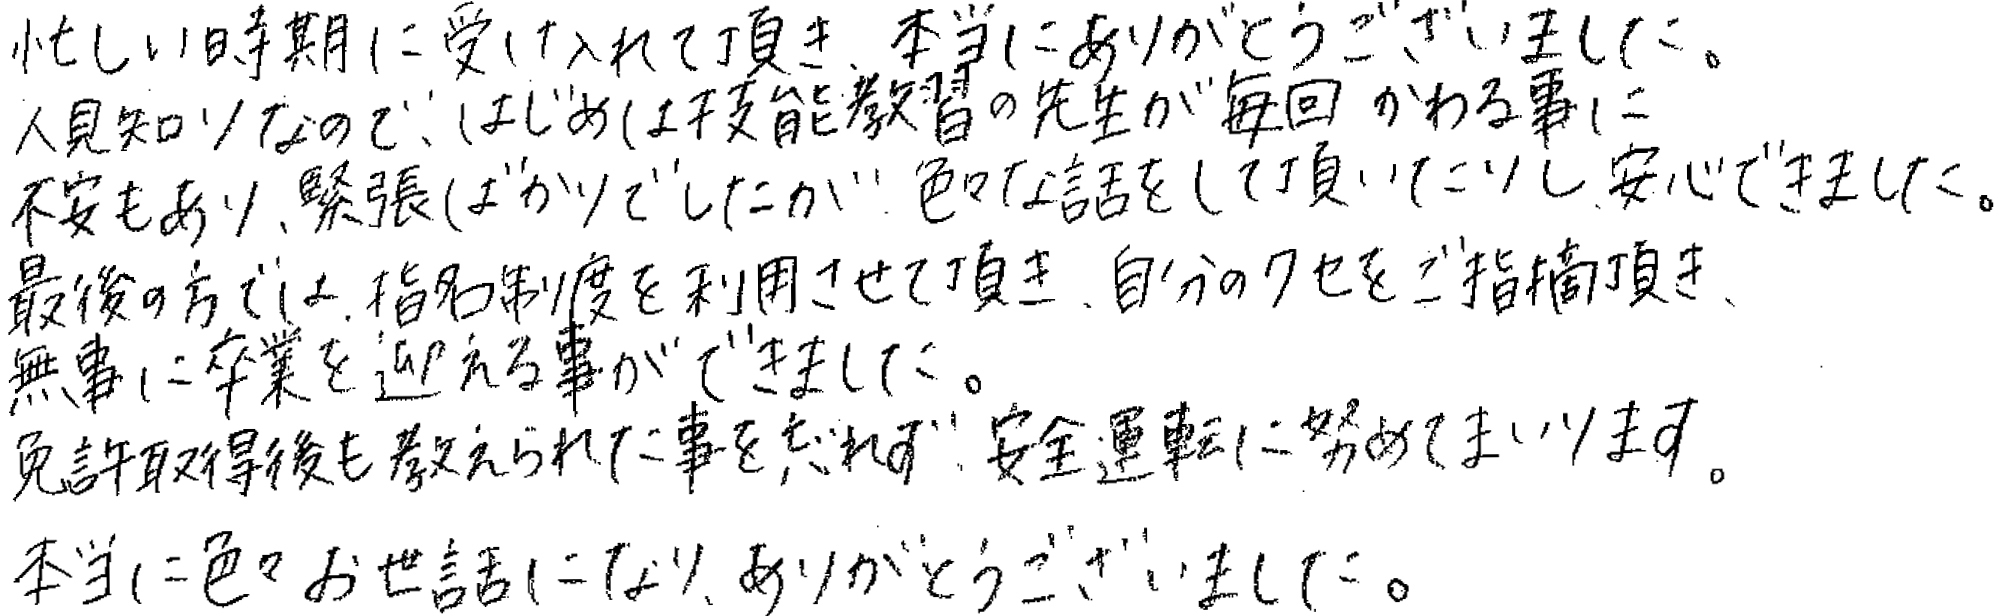 忙しい時期に受け入れて頂き、本当にありがとうございました。
人見知りなので、はじめは技能教習の先生が毎回かわる事に
不安もあり、緊張ばかりでしたが、色々な話をして頂いたりし、安心できました。
最後の方では、指名制度を利用させて頂き、自分のクセをご指摘頂き、
無事に卒業を迎える事ができました。
免許取得後も教えられた事を忘れず、安全運転に努めてまいります。
本当に色々お世話になり、ありがとうございました。